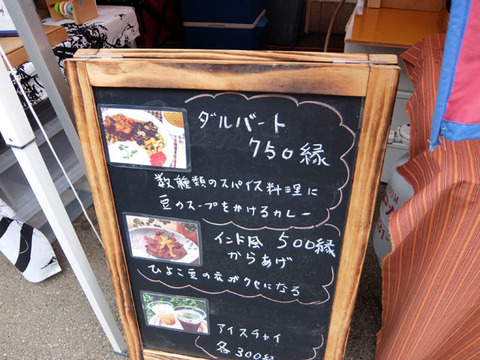 ダルバート
750縁
数種類のスパイス料理に
豆のスープをかけるカレー
インド風 500縁
からあげ
ひよこ豆の衣がクセになる
アイスチャイ
各300縁